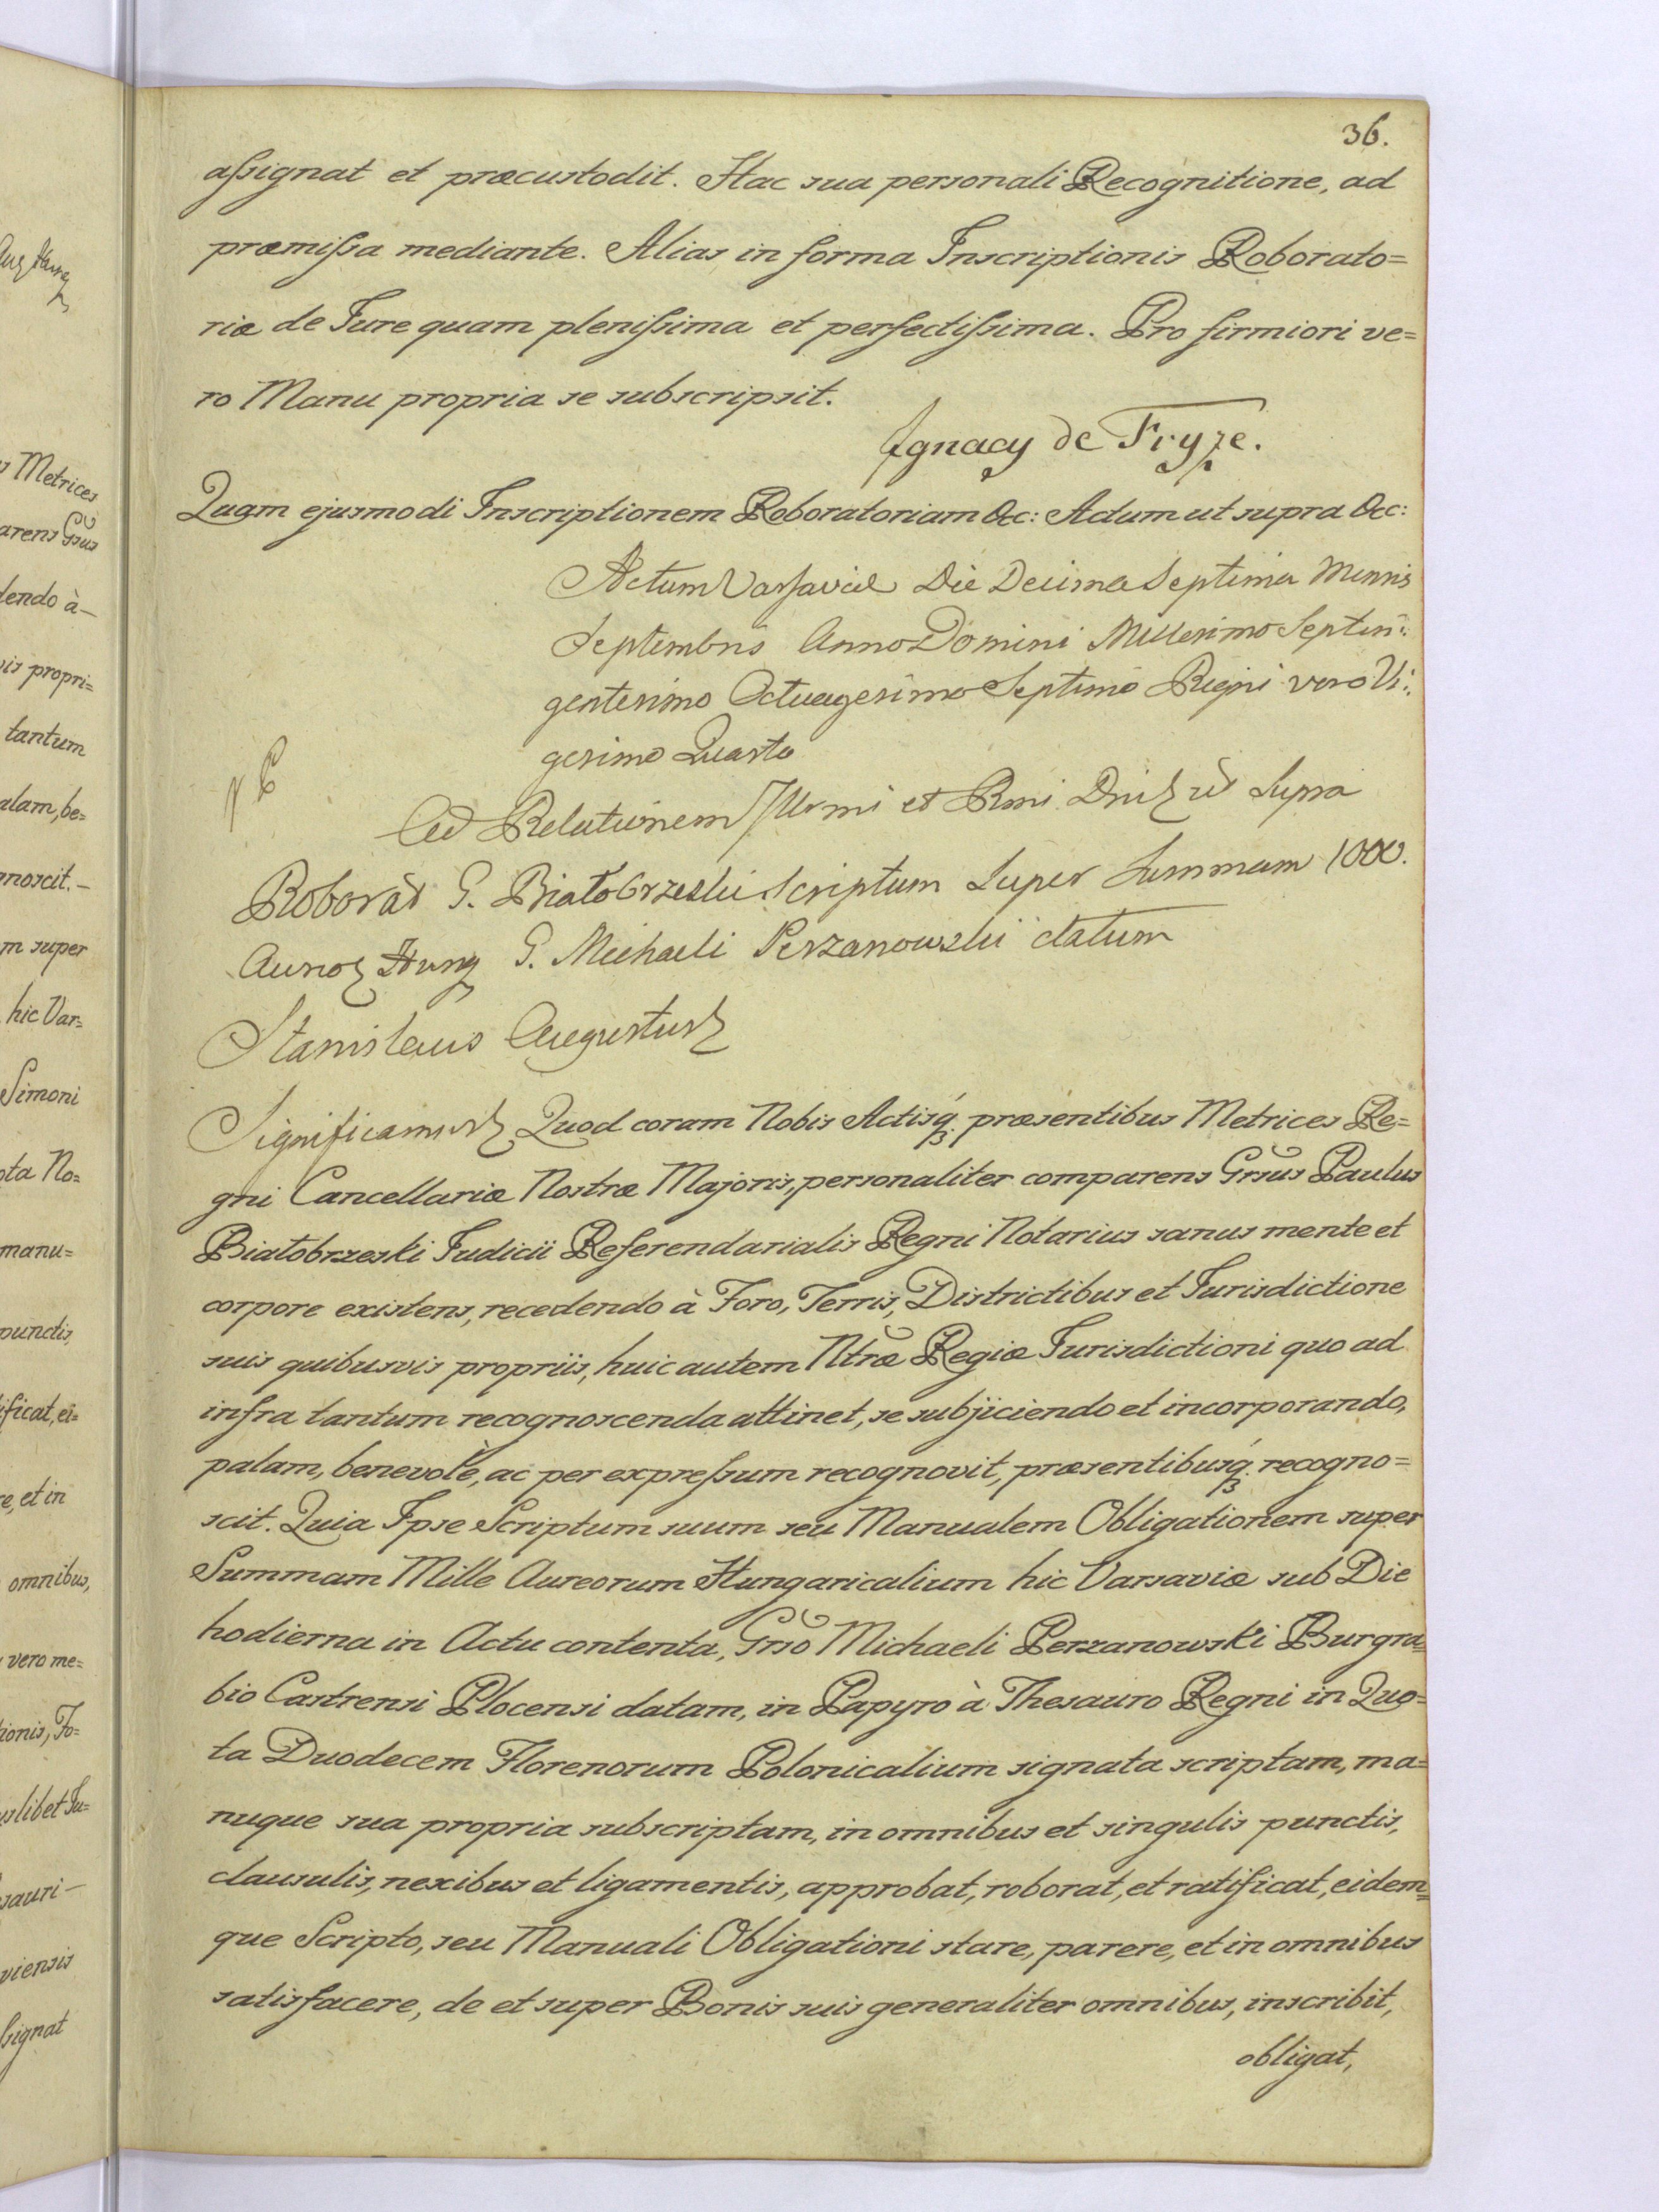 36.
assignat et præcustodit. Hac sua personali Recognitione, ad
præmissa mediante. Alias in forma Inscriptionis Roborato=
riæ de Jure quam plenissima et perfectissima. Pro firmiori ve=
ro Manu propria se subscripsit.
Ignacy de Fryze.
Quam ejusmodi Inscriptionem Roboratoriam &c: Actum ut supra &c:
Actum Varsaviæ Die Decima Septima Mensis
Septembris Anno Domini Millesimo Septin=
gentesimo Octuagesimo Septimo Regni vero Vi=
gesimo Quarto
Ad Relationem Illrmi et Rmi Dni ut Supra
Roborat G. Białobrzeski Scriptum Super Summam 1000.
Aureor Hung G. Michaeli Perzanowski datum
Stanislaus Augustus
Significamus Quod coram Nobis Actisq́ præsentibus Metrices Re=
gni Cancellariæ Nostræ Majoris, personaliter comparens Grsus Paulus
Białobrzeski Judicii Referendarialis Regni Notarius sanus mente et
corpore existens, recedendo à Foro, Terris, Districtibus et Jurisdictione
suis quibusvis propriis, huic autem Ntræ Regiæ Jurisdictioni quo ad
infra tantum recognoscenda attinet, se subjiciendo et incorporando,
palam, benevolè, ac per expressum recognovit, præsentibusq́ recogno=
scit. Quia Ipse Scriptum suum seu Manualem Obligationem super
Summam Mille Aureorum Hungaricalium hic Varsaviæ sub Die
hodierna in Actu contenta, Grso Michaeli Perzanowski Burgra=
bio Castrensi Plocensi datam, in Papyro à Thesauro Regni in Quo=
ta Duodecem Florenorum Polonicalium signata scriptam, ma=
nuque sua propria subscriptam, in omnibus et singulis punctis,
clausulis, nexibus et ligamentis, approbat, roborat, et ratificat, eidem=
que Scripto, seu Manuali Obligationi stare, parere, et in omnibus
satisfacere, de et super Bonis suis generaliter omnibus, inscribit,
obligat,